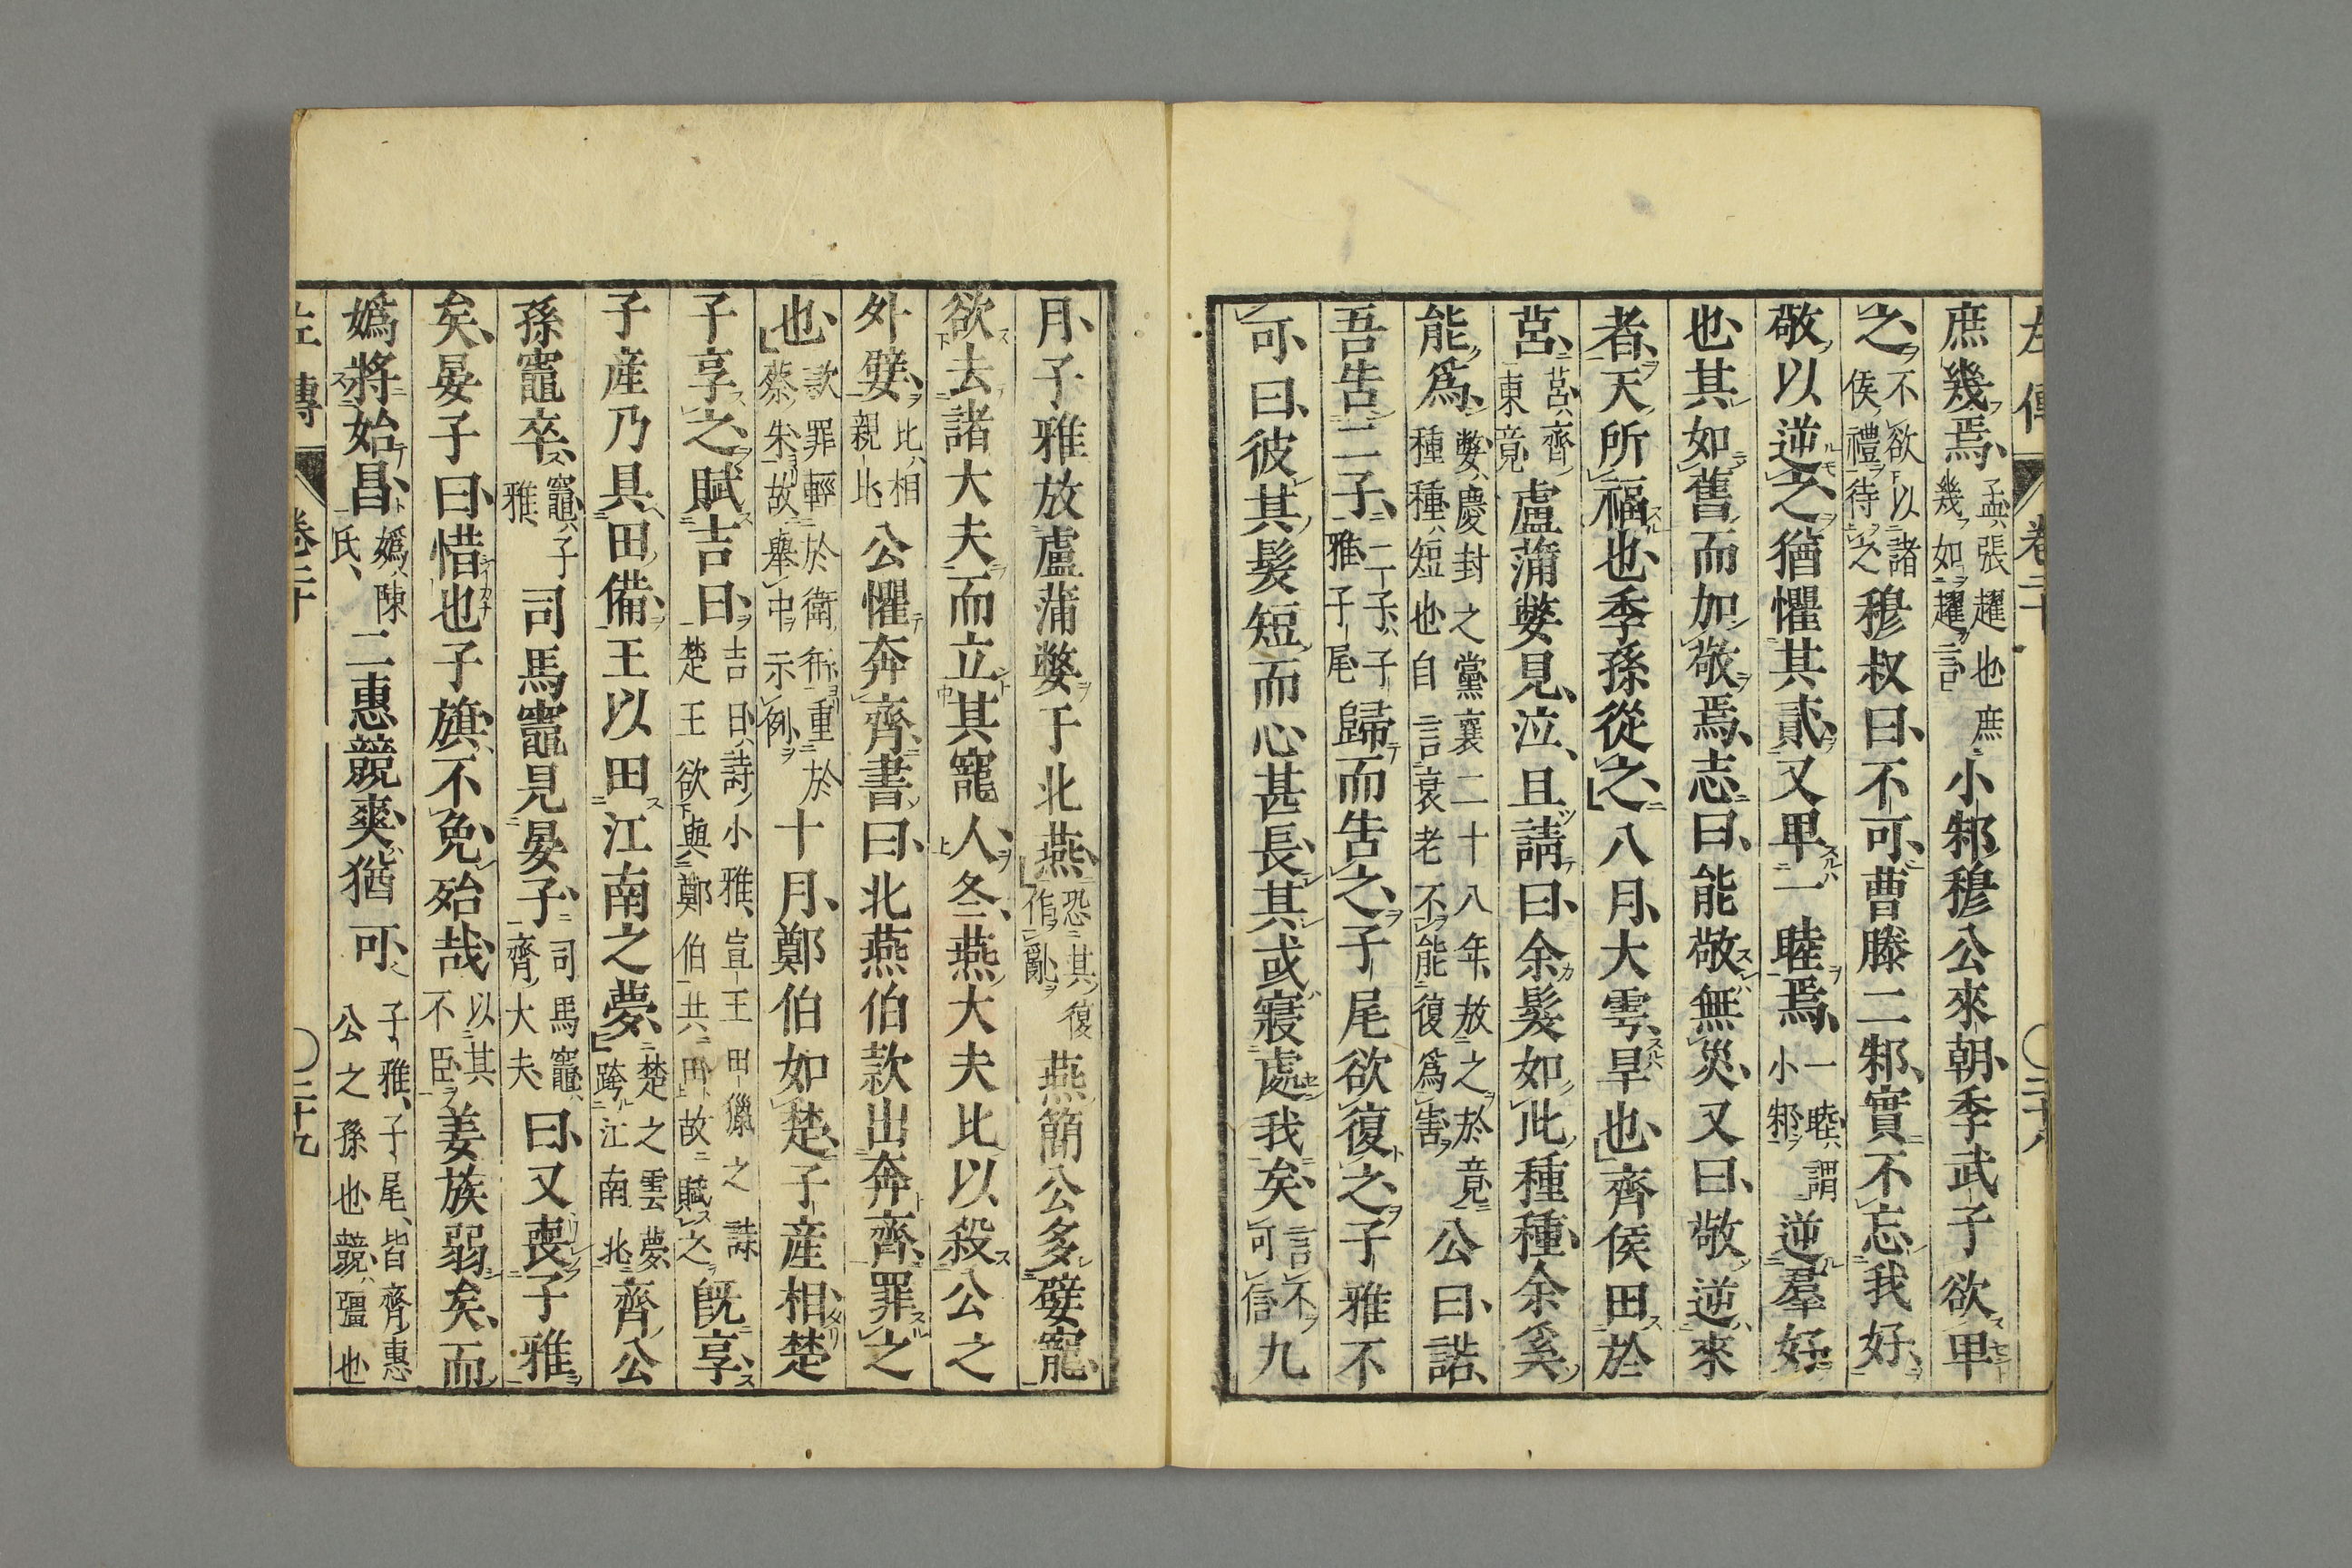 左傳 卷二十 〇二十八
庶幾焉孟張趯也庶幾如趯言小邾穆公來朝季武子欲卑
之不欲以諸侯禮待之穆叔曰不可曹滕二邾實不忘我好
敬以逆之猶懼其貳又卑一睦焉一睦謂小邾逆羣好
也其如舊而加敬焉志曰能敬無災又曰敬逆來
者天所福也季孫從之八月大雩旱也齊侯田於
莒莒齊東竟盧蒲嫳見泣且請曰余髮如此種種余奚
能爲嫳慶封之黨襄二十八年放之於竟種種短也自言衰老不能復爲害公曰諾
吾告二子二子子雅子尾歸而告之子尾欲復之子雅不
可曰彼其髮短而心甚長其或寢處我矣言不可信九
月子雅放盧蒲嫳于北燕恐其復作亂燕簡公多嬖寵
欲去諸大夫而立其寵人冬燕大夫比以殺公之
外嬖比相親比公懼奔齊書曰北燕伯款出奔齊罪之
也款罪輕於衛衎重於蔡朱故舉中示例十月鄭伯如楚子產相楚
子享之賦吉日吉日詩小雅宣王田獵之詩楚王欲與鄭伯共田故賦之既享
子產乃具田備王以田江南之夢楚之雲夢跨江南北齊公
孫竈卒竈子雅司馬竈見晏子司馬竈齊大夫曰又喪子雅
矣晏子曰惜也子旗不免殆哉以其不臣姜族弱矣而
嬀將始昌嬀陳氏二惠競爽猶可子雅子尾皆齊惠公之孫也競彊也
左傳 卷二十 〇二十九